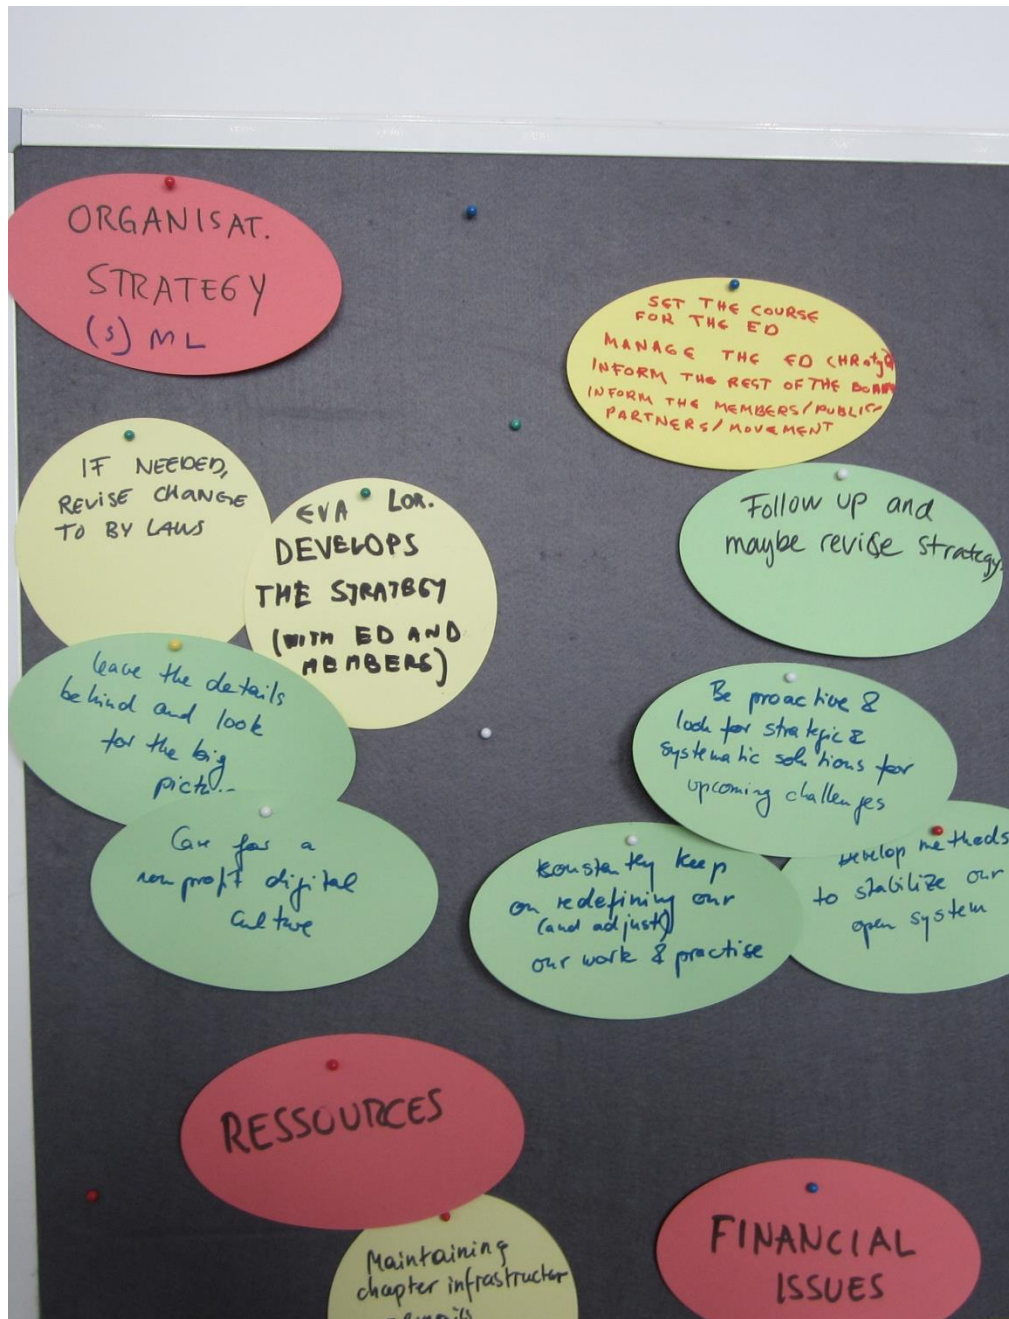 ORGANISAT.
STRATEGY
(S) ML
SET THE COURSE
FOR THE ED
MANAGE THE ED
INFORM THE REST OF THE BOARD
INFORM THE MEMBERS/PUBLIC/
PARTNERS/MOVEMENT
IF NEEDED,
REVISE CHANGE
TO BY LAWS
EVA LOR.
DEVELOPS
THE STRATEGY
(WITH ED AND
MEMBERS)
Follow up and
maybe revise strategy
leave the details
behind and look
for the big
pictu...
Care for a
non profit digital
culture
Be proactive &
look for strategic &
systematic solutions for
upcoming challenges
Konstantly keep
on redefining our
(and adjust)
our work & practise
Develop methods
to stabilize our
open system
RESSOURCES
Maintaining
chapter infrastructur
FINANCIAL
ISSUES